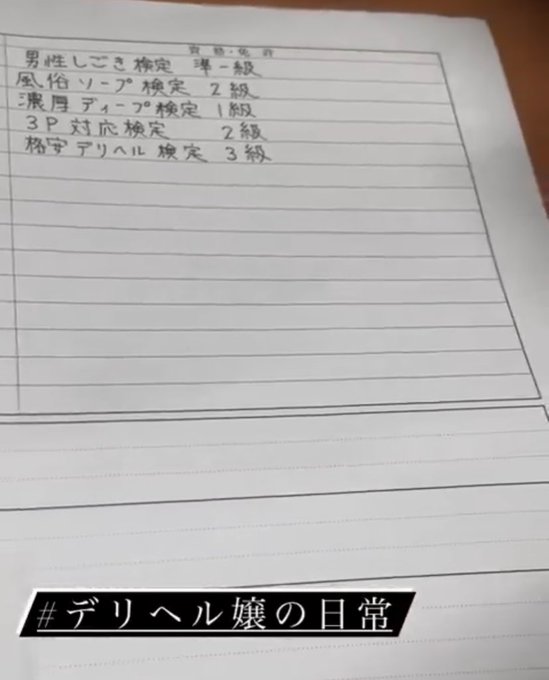 資格・免許
男性しごき検定 準一級
風俗ソープ検定 2級
濃厚ディープ検定 1級
3P対応検定 2級
格安デリヘル検定 3級
#デリヘル嬢の日常